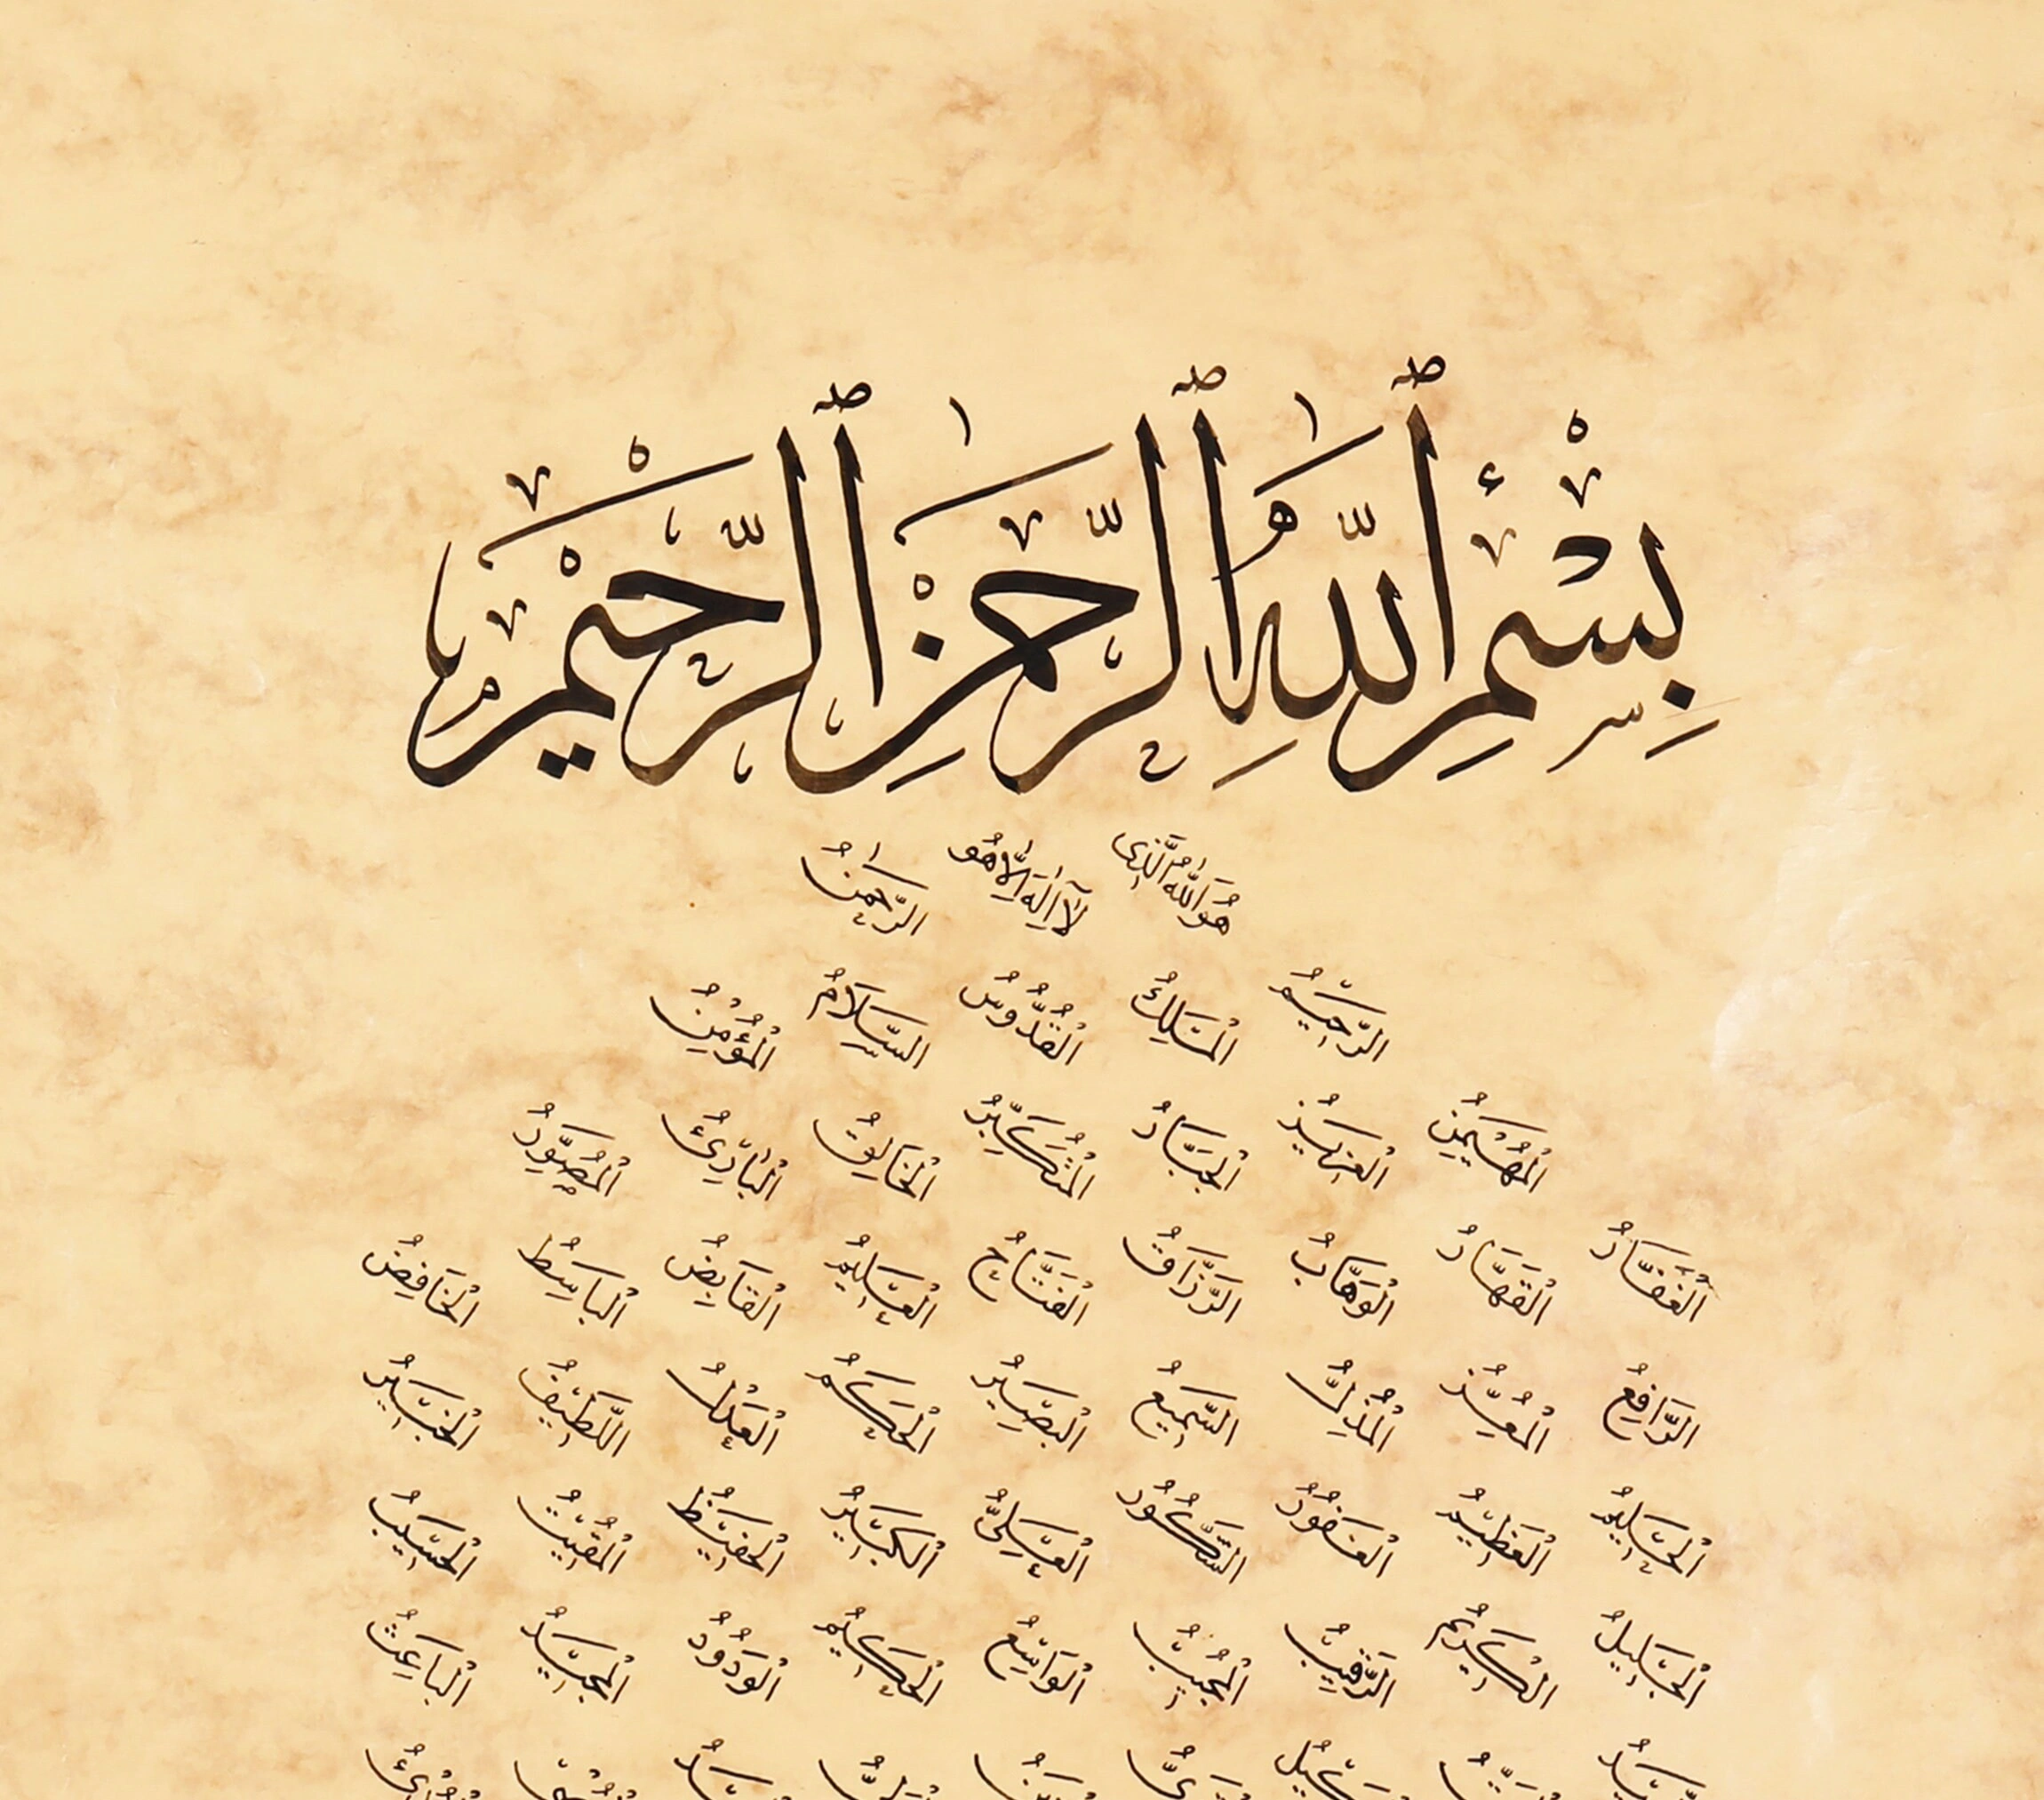 بِسْمِ ٱللَّهِ ٱلرَّحْمَٰنِ ٱلرَّحِيْمِ
هُوَ اللّٰهُ الَّذِى لَآ اِلٰهَ اِلَّا هُوَ الرَّحْمٰنُ
الرَّحِيمُ الْمَلِكُ الْقُدُّوسُ السَّلَامُ الْمُؤْمِنُ
الْمُهَيْمِنُ الْعَزِيزُ الْجَبَّارُ الْمُتَكَبِّرُ الْخَالِقُ الْبَارِئُ الْمُصَوِّرُ
الْغَفَّارُ الْقَهَّارُ الْوَهَّابُ الرَّزَّاقُ الْفَتَّاحُ الْعَلِيمُ الْقَابِضُ الْبَاسِطُ الْخَافِضُ
الرَّافِعُ الْمُعِزُّ الْمُذِلُّ السَّمِيعُ الْبَصِيرُ الْحَكَمُ الْعَدْلُ اللَّطِيفُ الْخَبِيرُ
الْحَلِيمُ الْعَظِيمُ الْغَفُورُ الشَّكُورُ الْعَلِىُّ الْكَبِيرُ الْحَفِيظُ الْمُقِيتُ الْحَسِيبُ
الْجَلِيلُ الْكَرِيمُ الرَّقِيبُ الْمُجِيبُ الْوَاسِعُ الْحَكِيمُ الْوَدُودُ الْمَجِيدُ الْبَاعِثُ